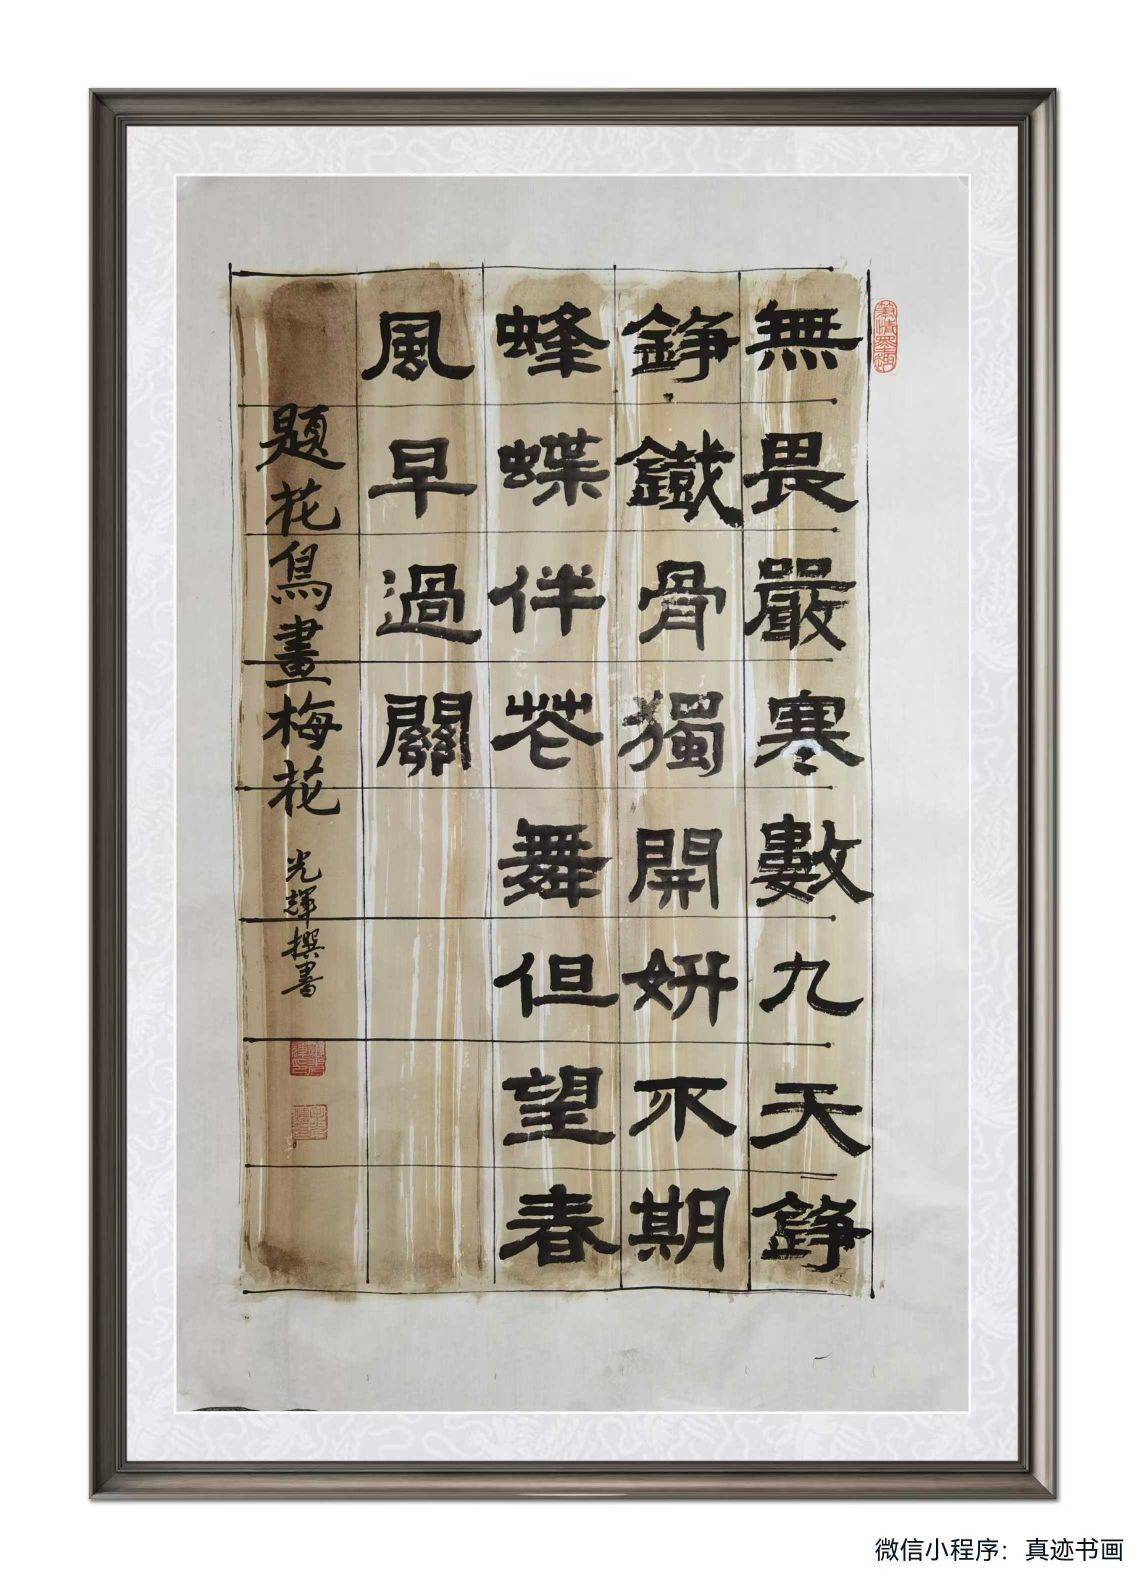 無畏嚴寒數九天錚
錚鐵骨獨開妍不期
蜂蝶伴芲舞但望春
風早過關
題花鳥畫梅花
光輝撰書
微信小程序：真迹书画